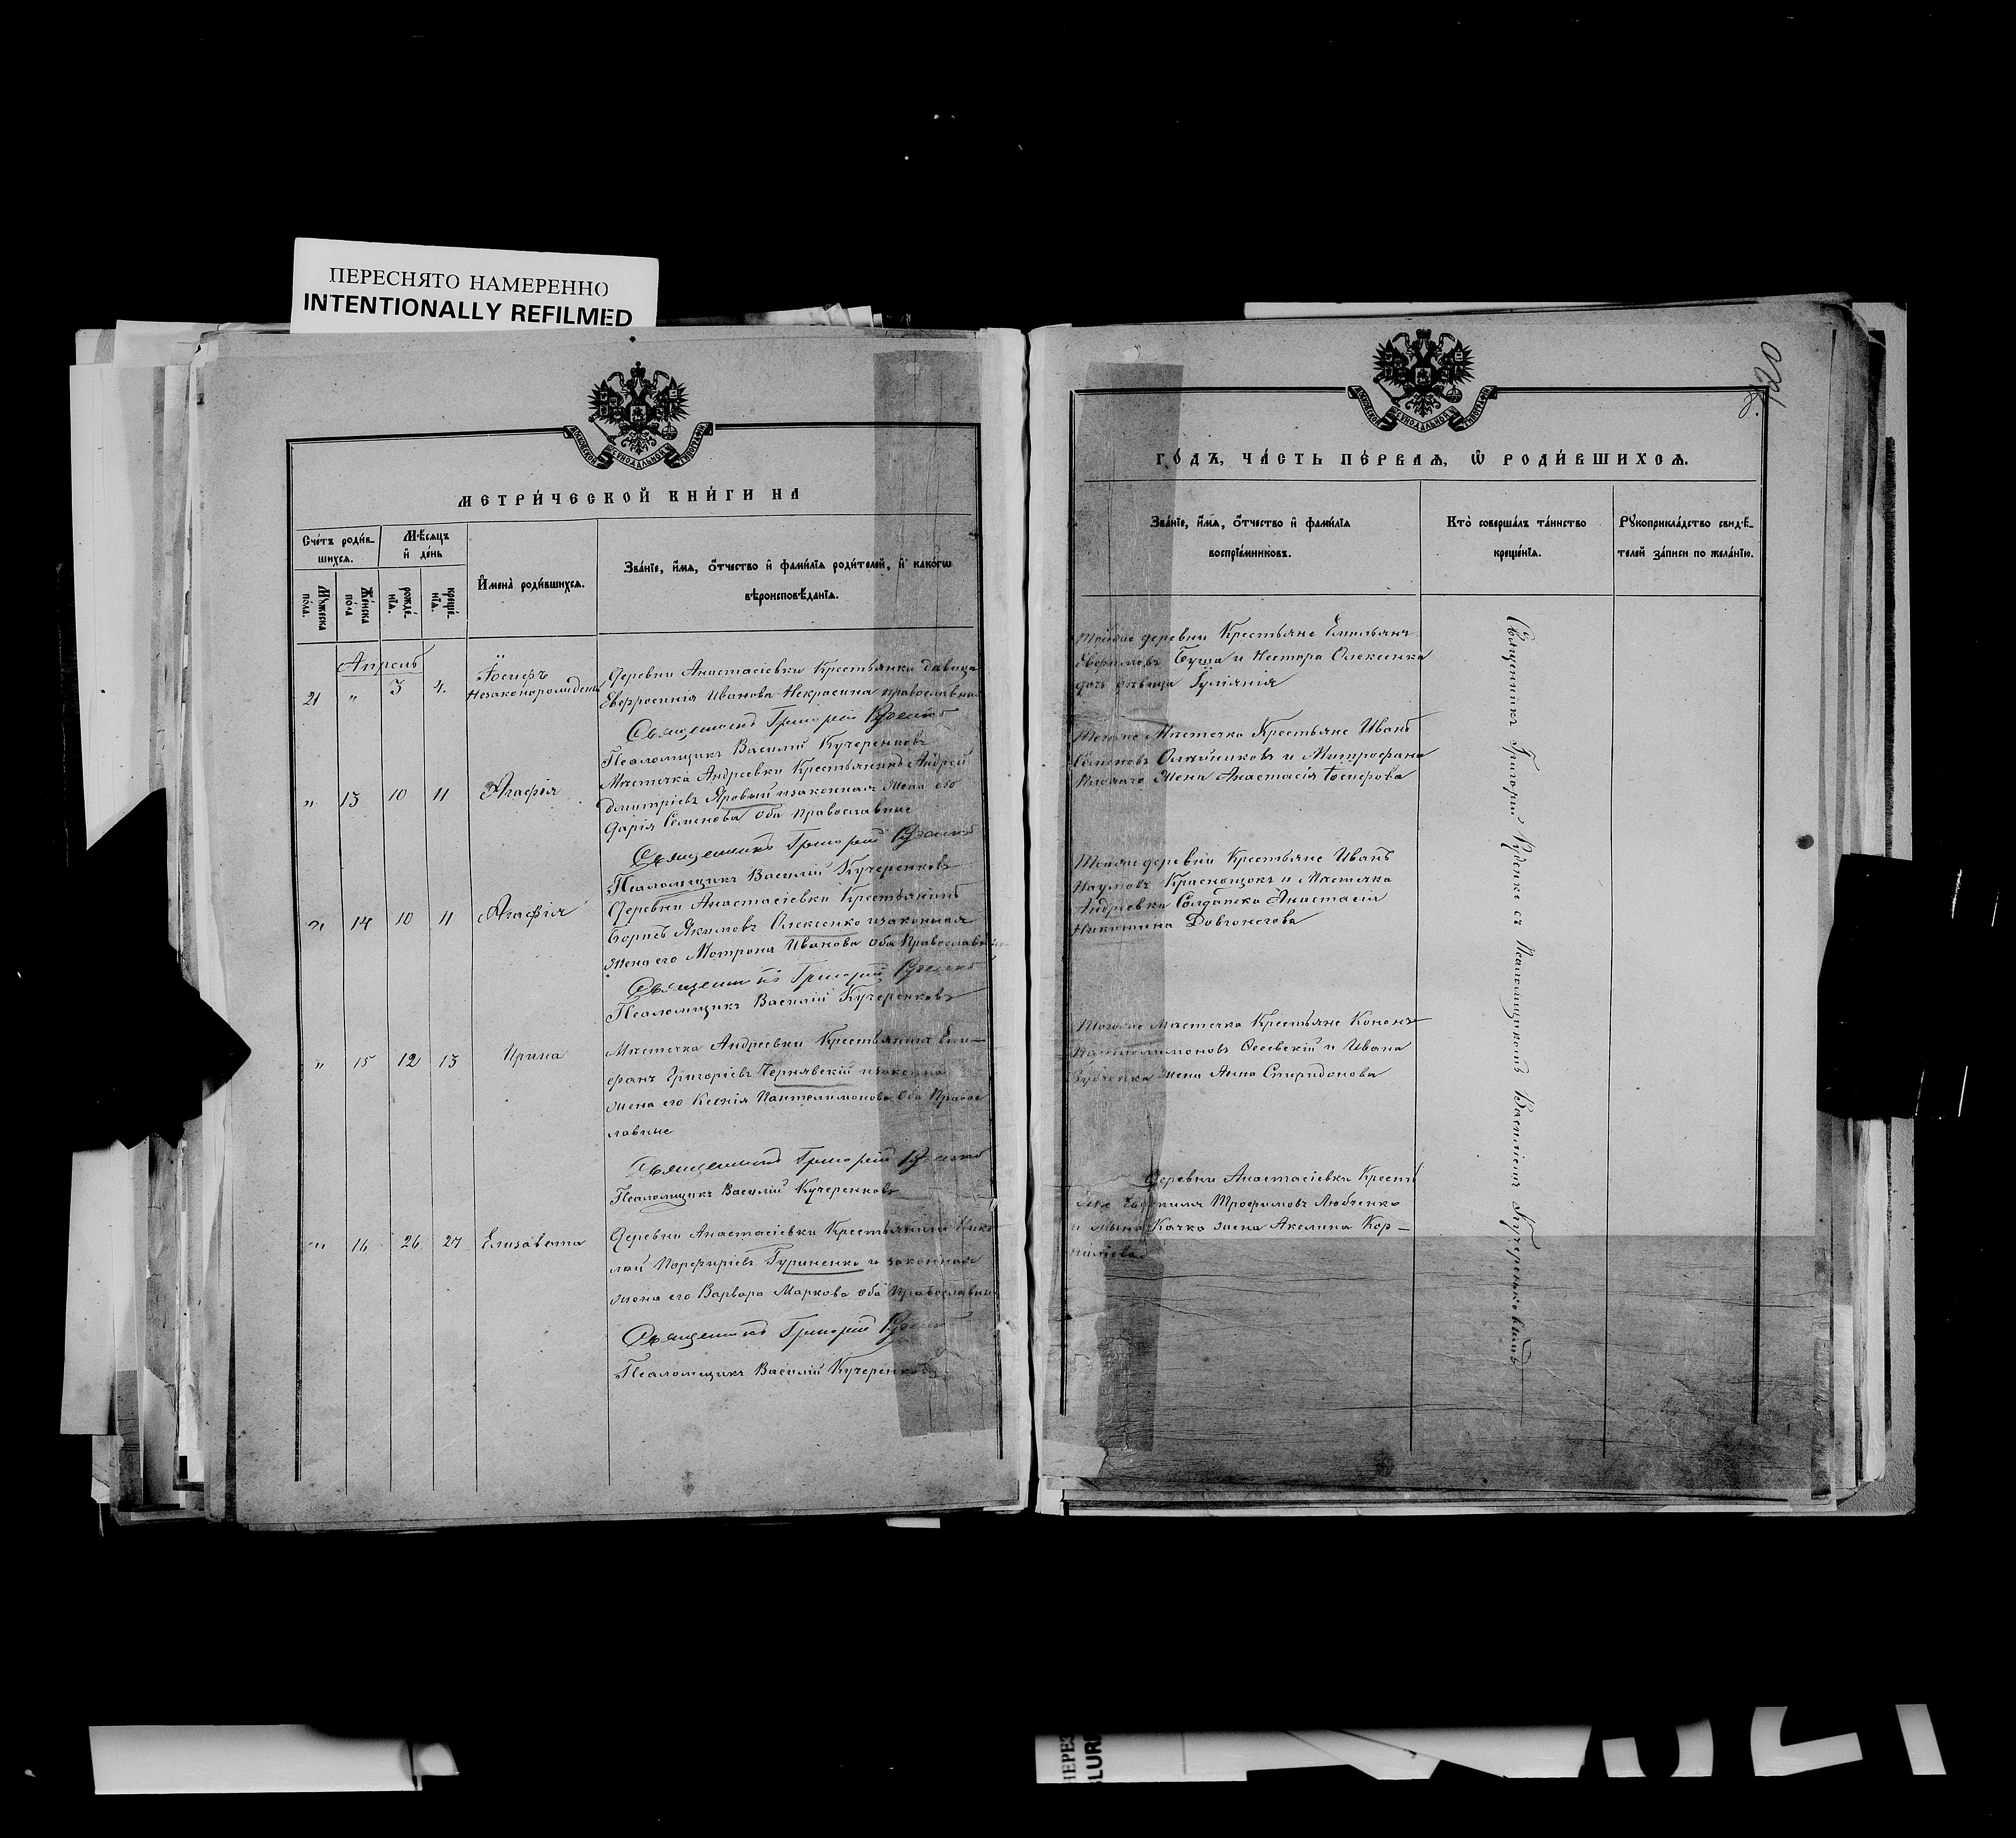 ПЕРЕСНЯТО НАМЕРЕННО
INTENTIONALLY REFILMED
МОСКОВСКОЙ СѴНОДАЛЬНОЙ ТИПОГРАФІИ
МЕТРИ́ЧЕСКОЙ КНИ́ГИ НА
Сче́тъ роди́в-
шихсѧ.
Мѣ́сѧцъ
и҆ де́нь
Мꙋ́жеска
по́ла.
Же́нска
по́ла
рожде́-
нїѧ.
креще́-
нїѧ.
И҆мена̀ роди́вшихсѧ.
Зва́нїе, и҆́мѧ, ѻ҆́тчество и҆ фами́лїѧ роди́телей, и҆ како́гѡ
вѣроисповѣ́данїѧ.
Апрель
21 " 3 4.
Іосифъ
Незаконорожденъ
Деревни Анастасіевки Крестьянка дѣвица
Евфросинія Иванова Некрасина православна
Священникъ Григорій Руденко
Псаломщикъ Василій Кучеренковъ
" 13 10 11 Агафія
Мѣстечка Андреевки Крестьянинъ Андрей
Дмитріевъ Яровый изаконная жена его
Дарія Семенова оба православные
Священникъ Григорій Руденко
Псаломщикъ Василій Кучеренковъ
" 14 10 11 Агафія
Деревни Анастасіевки Крестьянинъ
Борисъ Якимовъ Олексенко изаконная
жена его Мотрона Иванова оба Православные
Священникъ Григорій Руденко
Псаломщикъ Василій Кучеренковъ
" 15 12 13 Ирина
Мѣстечка Андреевки Крестьянинъ Епи-
фанъ Григоріевъ Чернявскій изаконная
жена его Ксенія Пантелимонова оба Право
славные
Священникъ Григорій Руденко
Псаломщикъ Василій Кучеренковъ
" 16 26 27 Елисавета
Деревни Анастасіевки Крестьянинъ Нико
лай Порфиріевъ Гуриненко и законная
жена его Варвара Маркова оба Православные
Священникъ Григорій Руденко
Псаломщикъ Василій Кучеренковъ
120
МОСКОВСКОЙ СѴНОДАЛЬНОЙ ТИПОГРАФІИ
ГО́ДЪ, ЧА́СТЬ ПЕ́РВАѦ, Ѡ҆ РОДИ́ВШИХСѦ.
Зва́нїе, и҆́мѧ, ѻ҆́тчество и҆ фами́лїѧ
воспрїе́мниковъ.
Кто̀ соверша́лъ та́инство
креще́нїѧ.
Рꙋкоприкла́дство свидѣ́-
телей за́писи по жела́нїю.
Тойже деревни Крестьяне Емельянъ
Евфимовъ Буша и Нестора Олексенка
дочь дѣвица Іуліянія
Тогоже Мѣстечка Крестьяне Иванъ
Семеновъ Олѣйниковъ и Митрофана
жена Анастасія Іосифова
Тойже деревни Крестьяне Иванъ
Наумовъ Краснощокъ и Мѣстечка
Андреевки Солдатка Анастасія
Никитина Довгоногова
Тогоже Мѣстечка Крестьяне Кононъ
Пантелимоновъ Осовскій и Ивана
Зубченка жена Анна Спиридонова
Деревни Анастасіевки Кресть
Трофимовъ Любченко
и Качка жена Акелина Кор-
ниліева
Священникъ Григорій Руденко съ Псаломщикомъ Василіемъ Кучеренковымъ